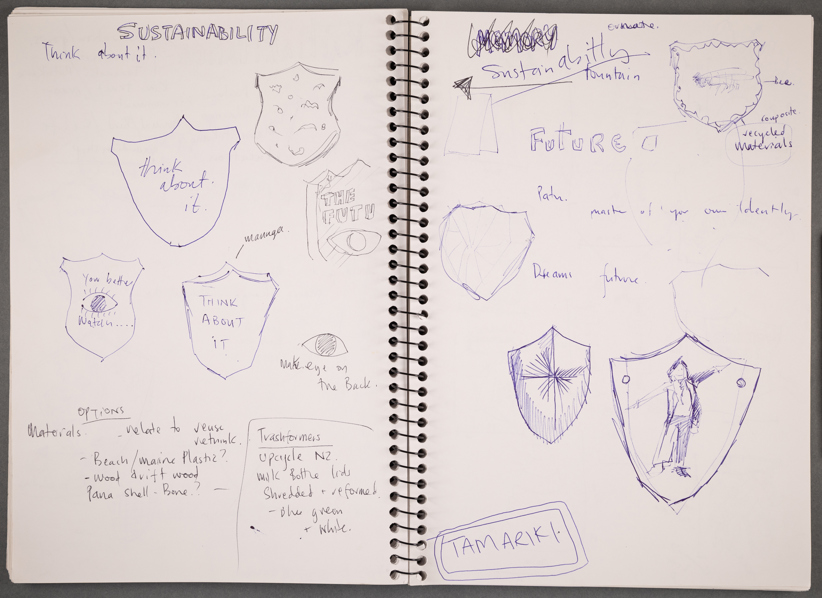 SUSTAINABILITY
Think about it.
think
about.
it.
THE
FUTU
You better
Watch....
THINK
ABOUT
IT
make eye on
the Back.
OPTIONS
Materials. - relate to reuse
rethink.
- Beach/marine Plastic?
- Wood drift wood
Paua shell - Bone? -
Trashformers
upcycle NZ.
milk Bottle lids
Shredded + reformed.
- blue green
+ white.
MEMORY
Sustainability
fountain
recycled
materials
FUTURE
Path.
master of your own Identity.
Dreams future.
TAMARIKI.